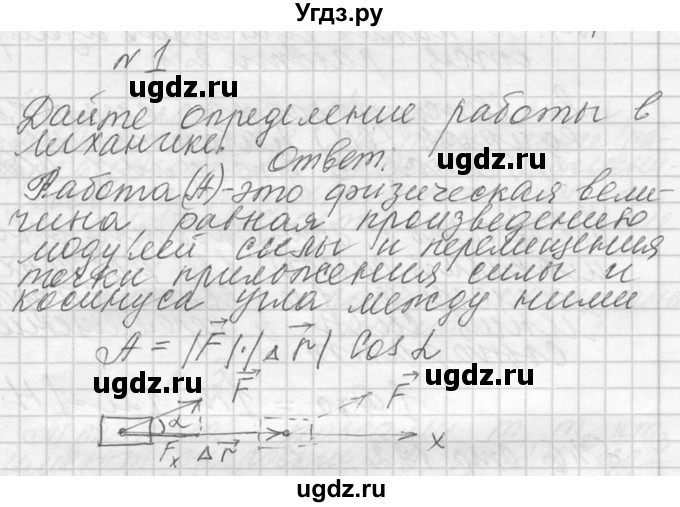 Угдз.ру
№ 1
ugdz.ru
Дайте определение работы в
механике.
ugdz.ru
Ответ.
ugdz.ru
Работа (А)-это физическая вели-
чина, равная произведению
модулей силы и перемещения
точки приложения силы и
косинуса угла между ними
ugdz.ru
A = |F|·|Δr| Cos α
ugdz.ru
F F
α
Fx Δr x
ugdz.ru
ugdz.ru